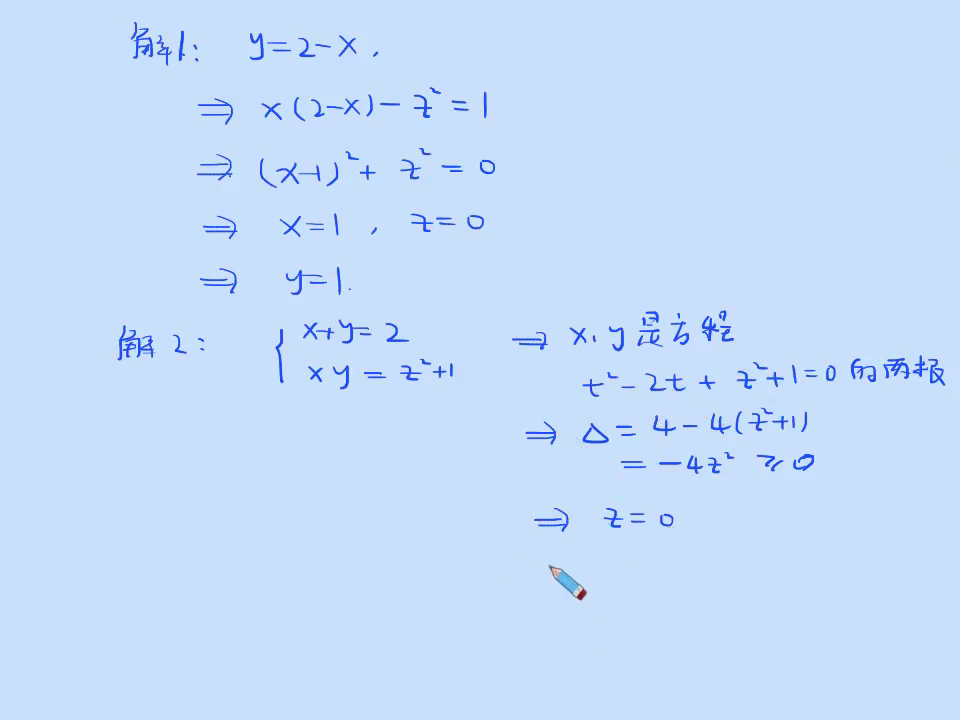 解1: y=2-x,
⇒ x(2-x)-z²=1
⇒ (x-1)²+z²=0
⇒ x=1, z=0
⇒ y=1.
解2: { x+y=2
xy=z²+1
⇒ x, y是方程
t²-2t+z²+1=0的两根
⇒ Δ=4-4(z²+1)
=-4z²≥0
⇒ z=0